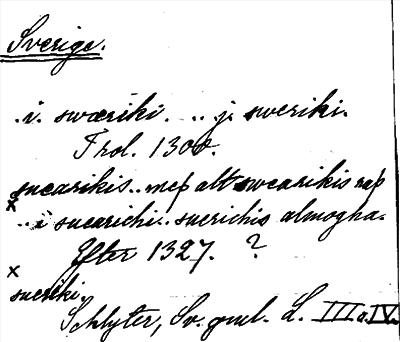 Sverige.
.i. swæriki. .. j. sweriki.
Trol. 1300.
sucarikis.. meþ alt swearikis raþ
x .. i suearichi.. suerichis almogha.
Efter 1327. ?
x
sueriki.
Schlyter, Sv. gml. L. III o. IV.